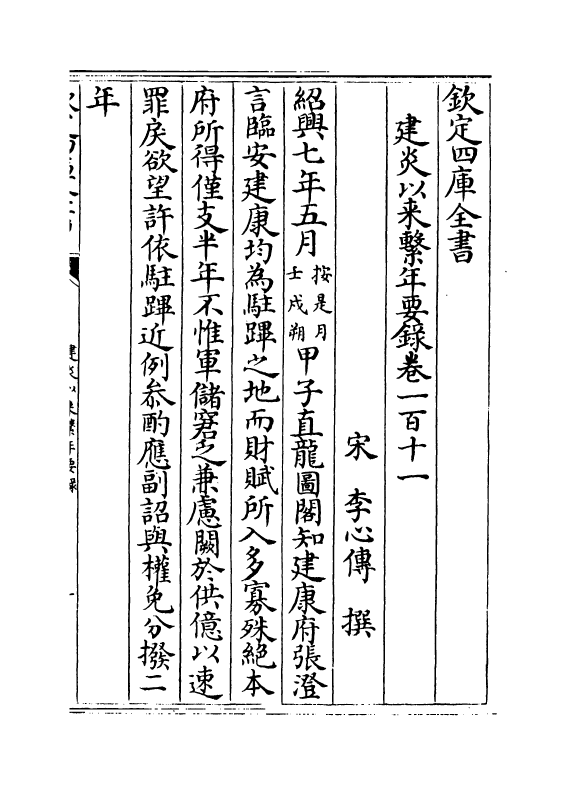 欽定四庫全書
建炎以来繫年要錄卷一百十一
宋 李心傳 撰
紹興七年五月按是月壬戌朔甲子直龍圖閣知建康府張澄
言臨安建康均為駐蹕之地而財賦所入多寡殊絶本
府所得僅支半年不惟軍儲窘乏兼慮闕於供億以速
罪戾欲望許依駐蹕近例叅酌應副詔與權免分撥二
年
建炎以来繫年要録
一